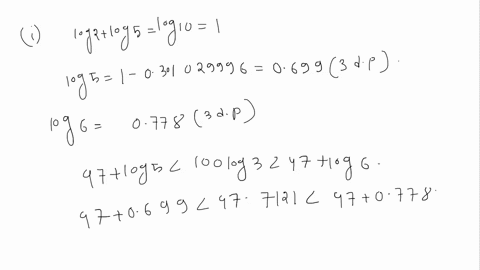 (i) log2+log5=log10=1
log5=1-0.301 029996=0.699(3d.p).
log6= 0.778(3d.p)
47+log5<100log3<47+log6.
47+0.699<47.7121<47+0.778.